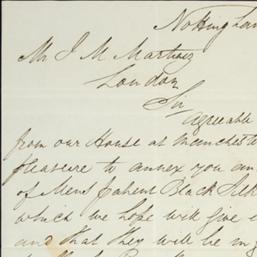 Notting Lan
Mr J M Martinez
London
Sir
Agreeable
from our House at Manchest
pleasure to annex you an
of Mens patent Black Silk
which we hope will give e
and that they will be in g